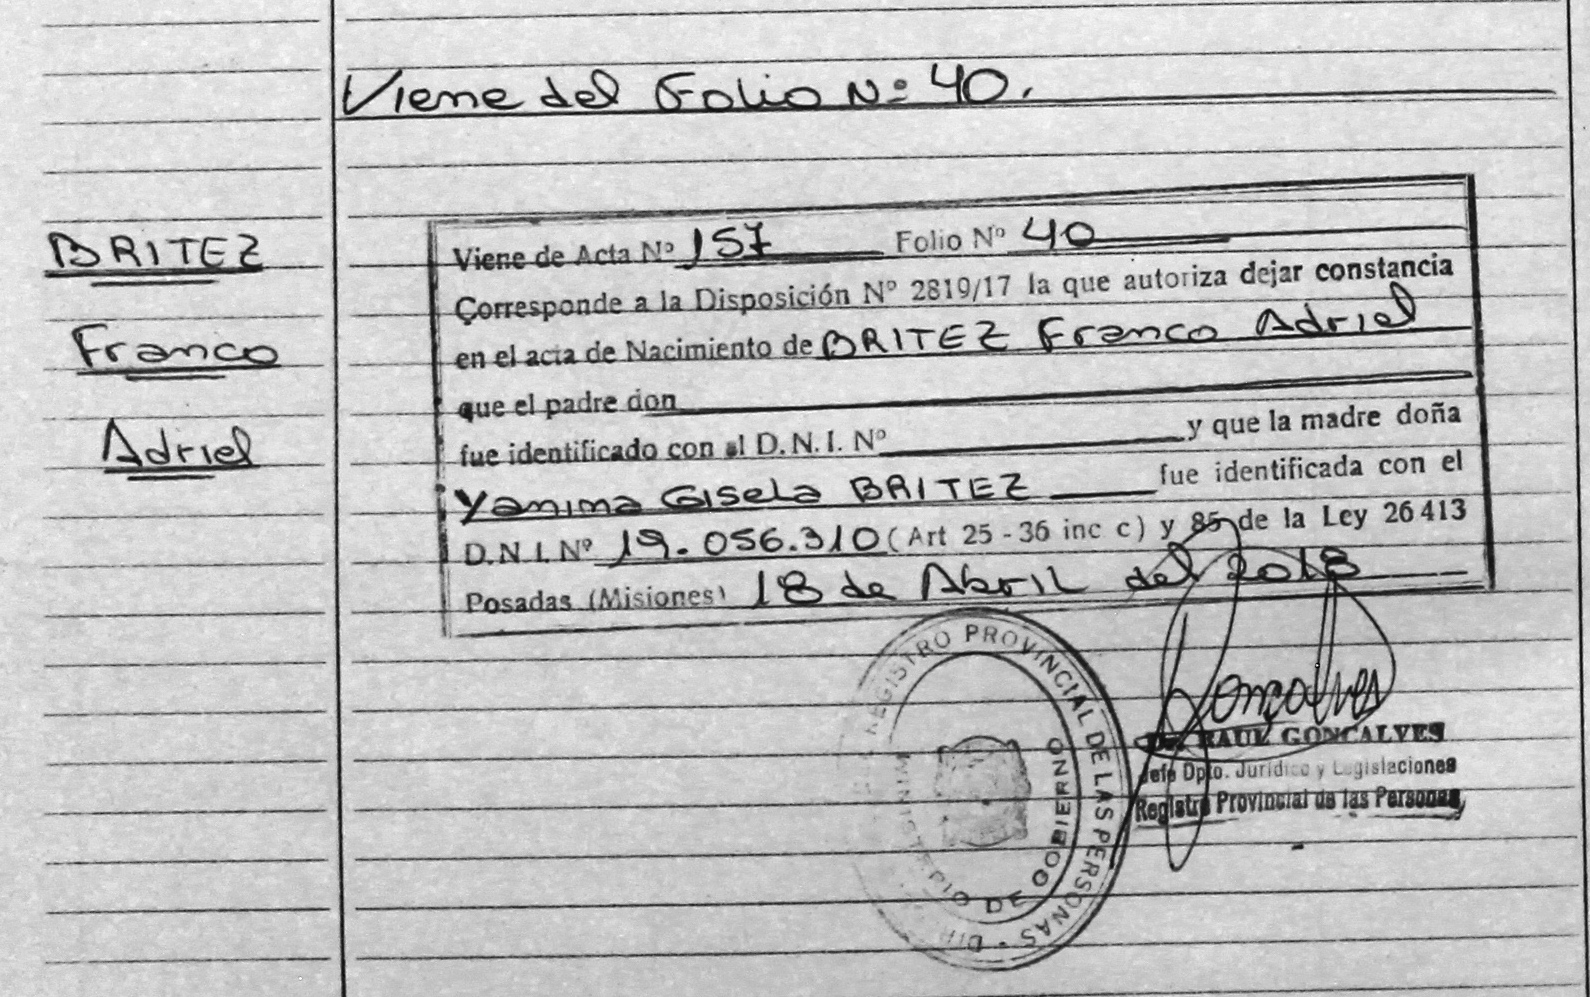 Viene del Folio Nº 40.
BRITEZ
Franco
Adriel
Viene de Acta Nº 157 Folio Nº 40
Corresponde a la Disposición Nº 2819/17 la que autoriza dejar constancia
en el acta de Nacimiento de BRITEZ Franco Adriel
que el padre don
fue identificado con el D.N.I. Nº y que la madre doña
Yanina Gisela BRITEZ fue identificada con el
D.N.I. Nº 19.056.310 (Art 25 - 36 inc c) y 85 de la Ley 26413
Posadas (Misiones) 18 de Abril del 2018
REGISTRO PROVINCIAL DE LAS PERSONAS
MINISTERIO DE GOBIERNO
Gonçalves
RAUL GONCALVES
Jefe Dpto. Jurídico y Legislaciones
Registro Provincial de las Personas